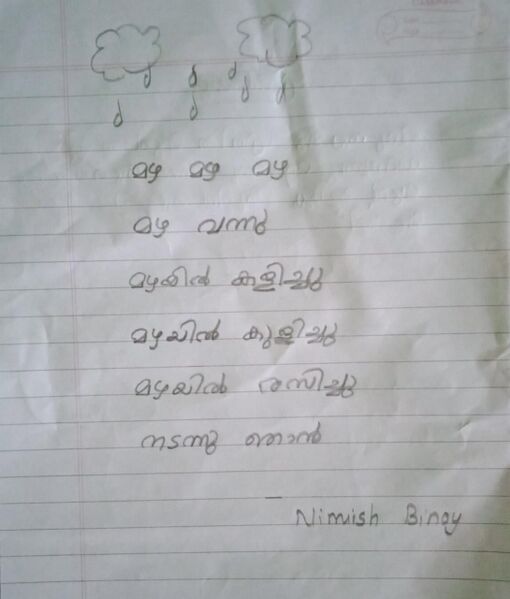 മഴ മഴ മഴ
മഴ വന്നു
മഴയിൽ കളിച്ചു
മഴയിൽ കുളിച്ചു
മഴയിൽ രസിച്ചു
നടന്നു ഞാൻ
– Nimish Binoy